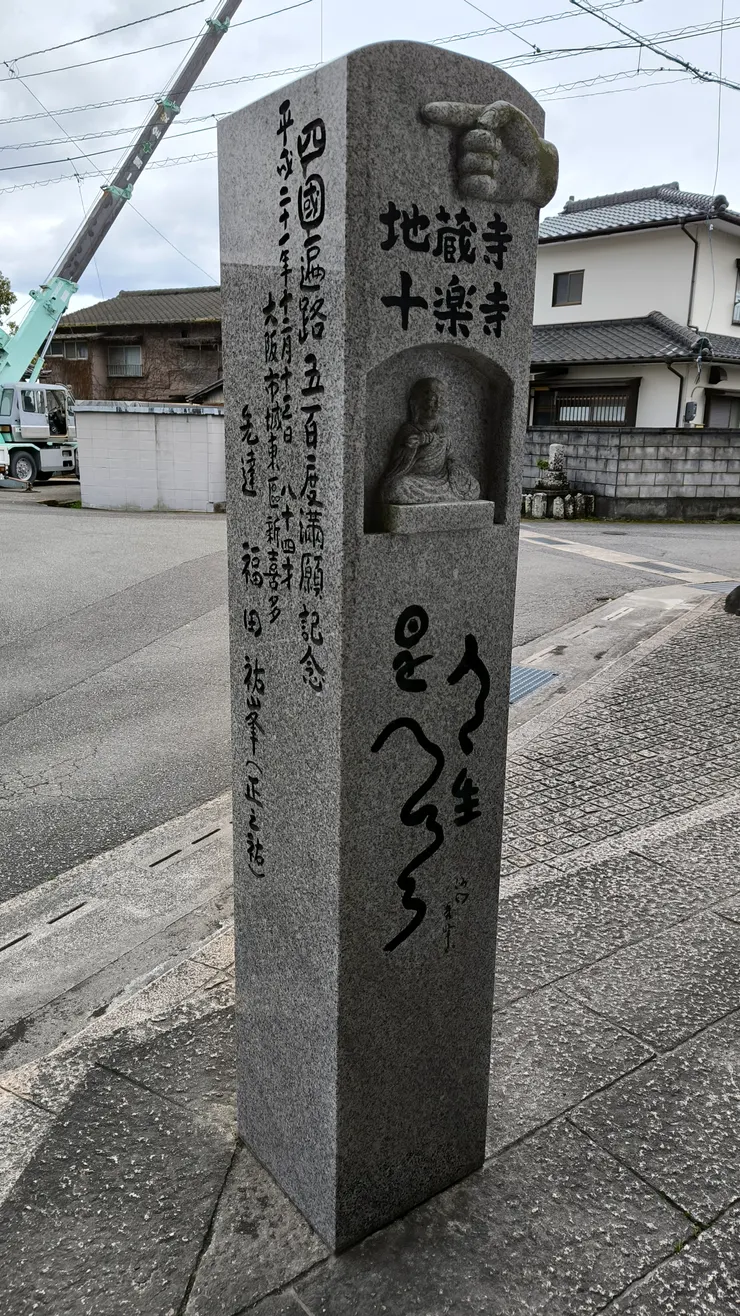 地蔵寺
十楽寺
四國遍路五百度満願記念
平成二十一年十二月十三日 八十四才
大阪市城東區新喜多
先達 福田 祐峯(正之祐)